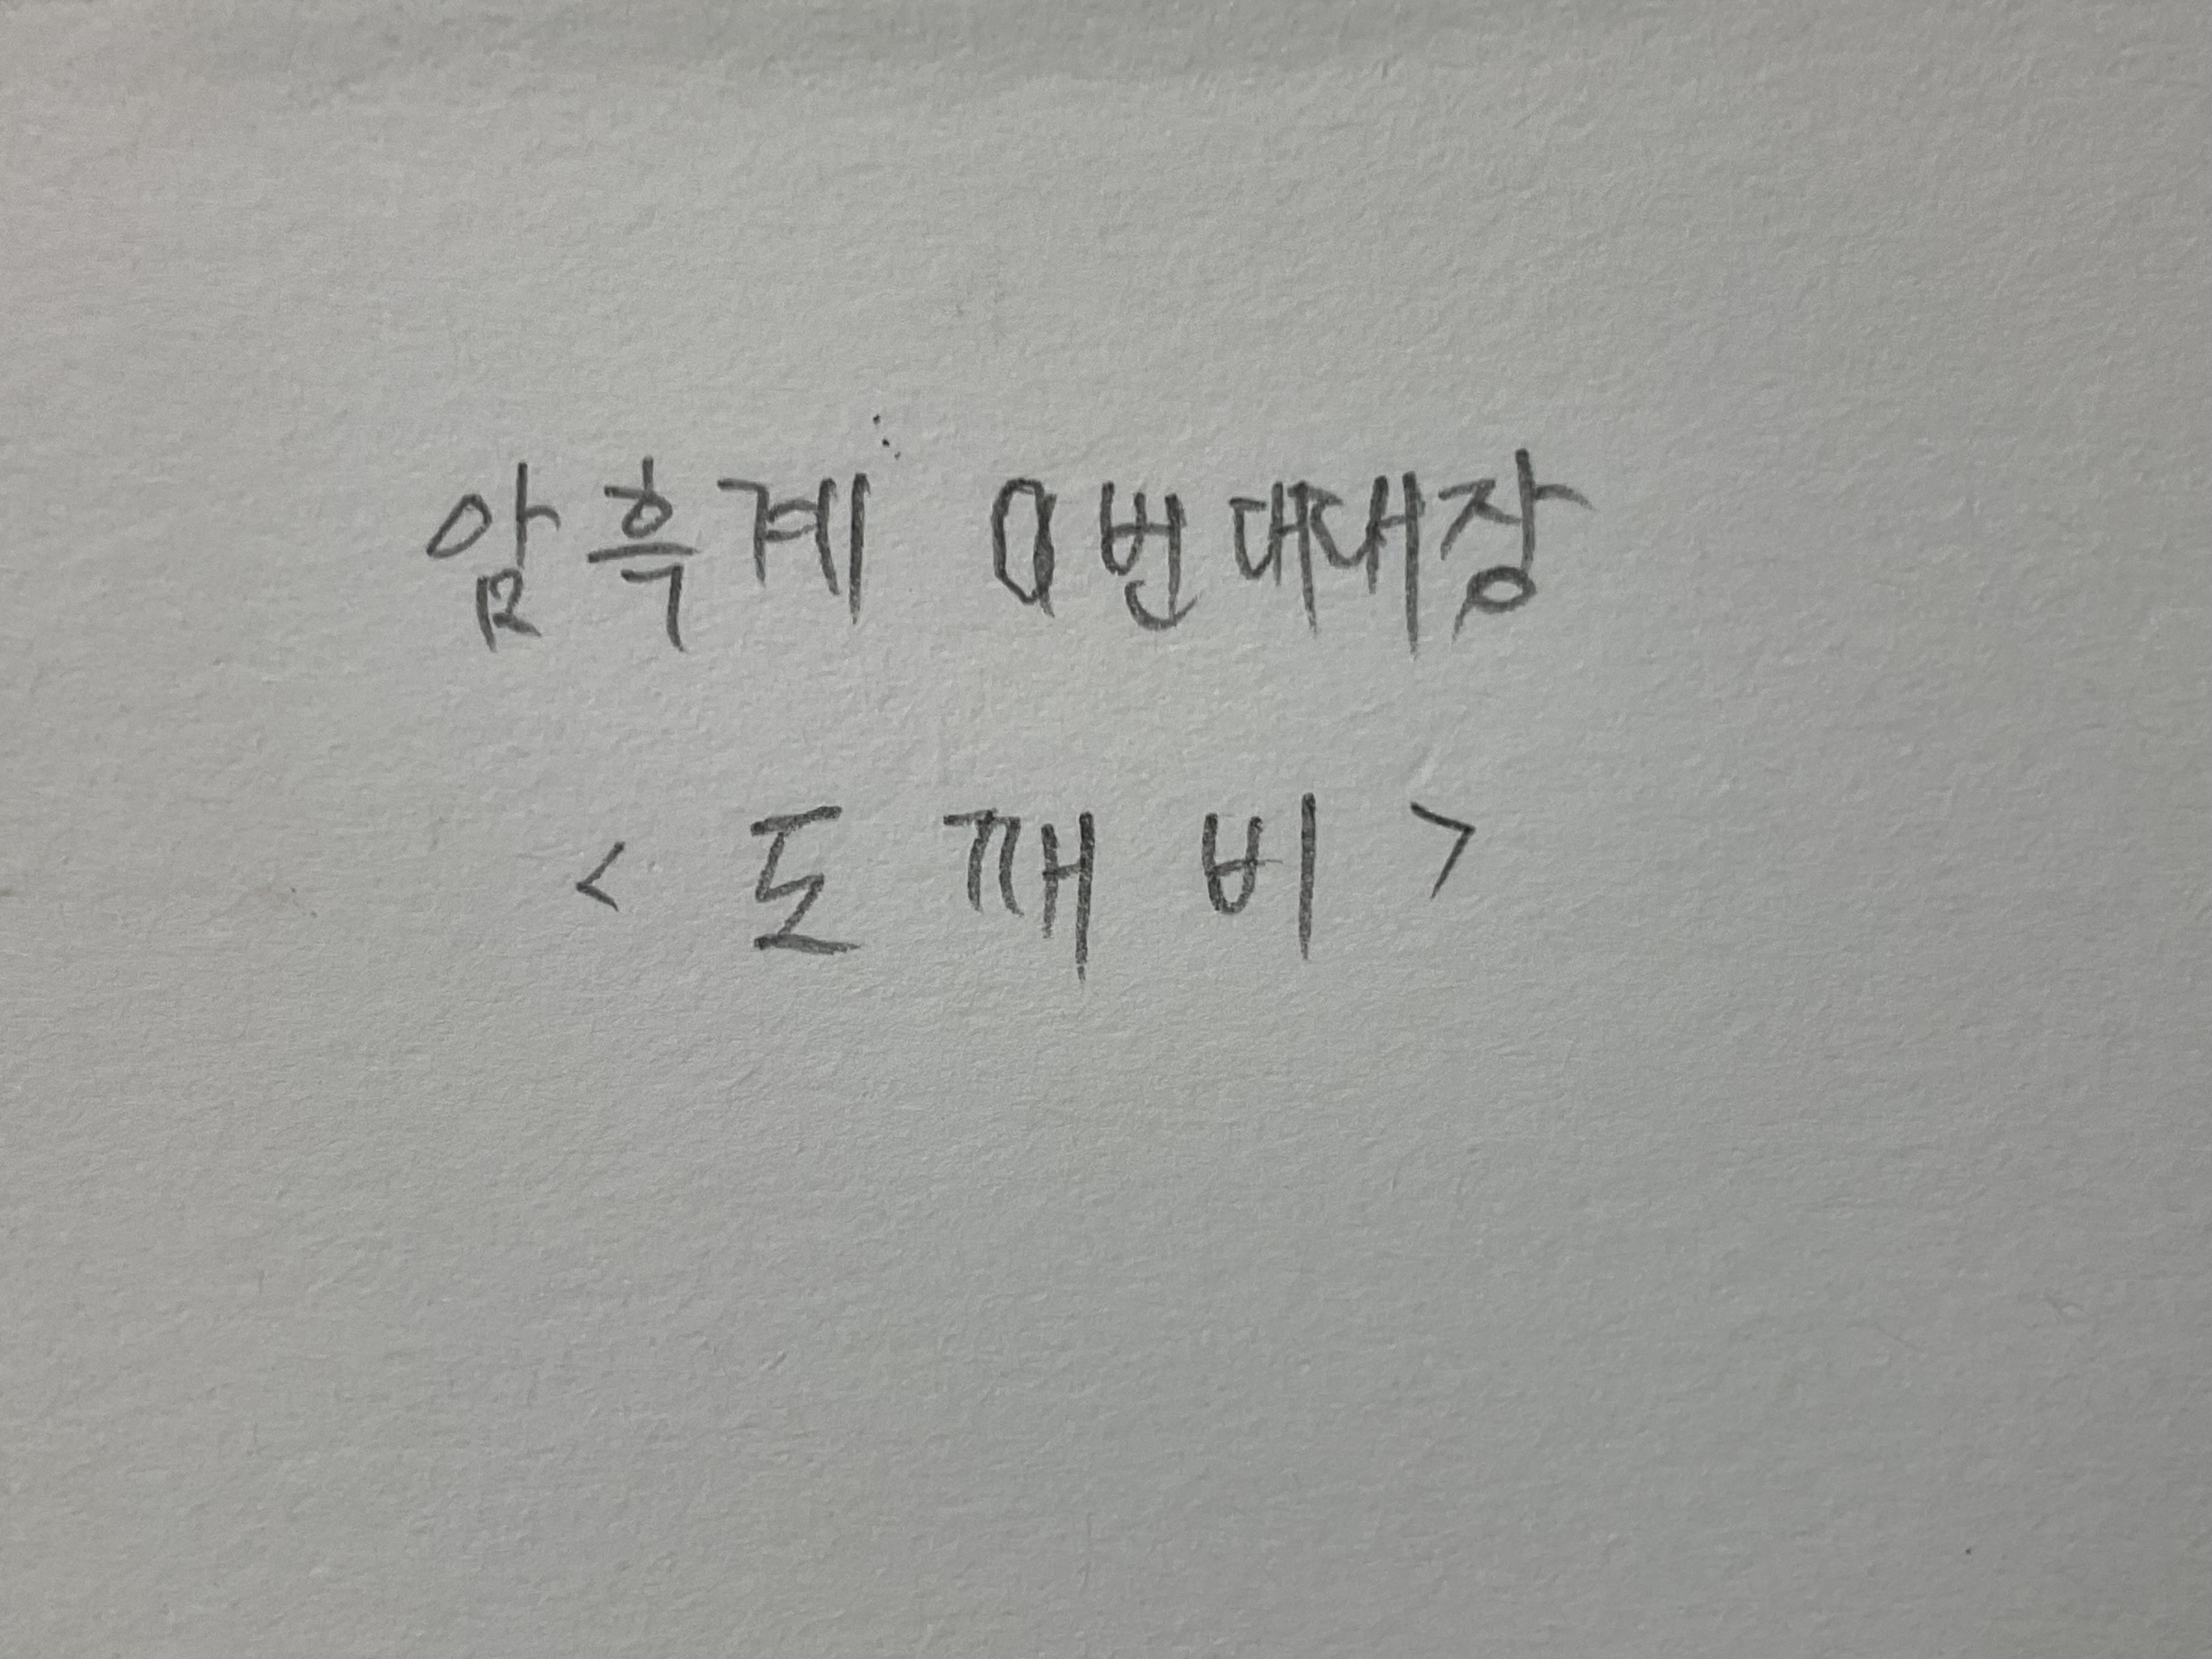 암흑계 0번대대장
< 도깨비 >